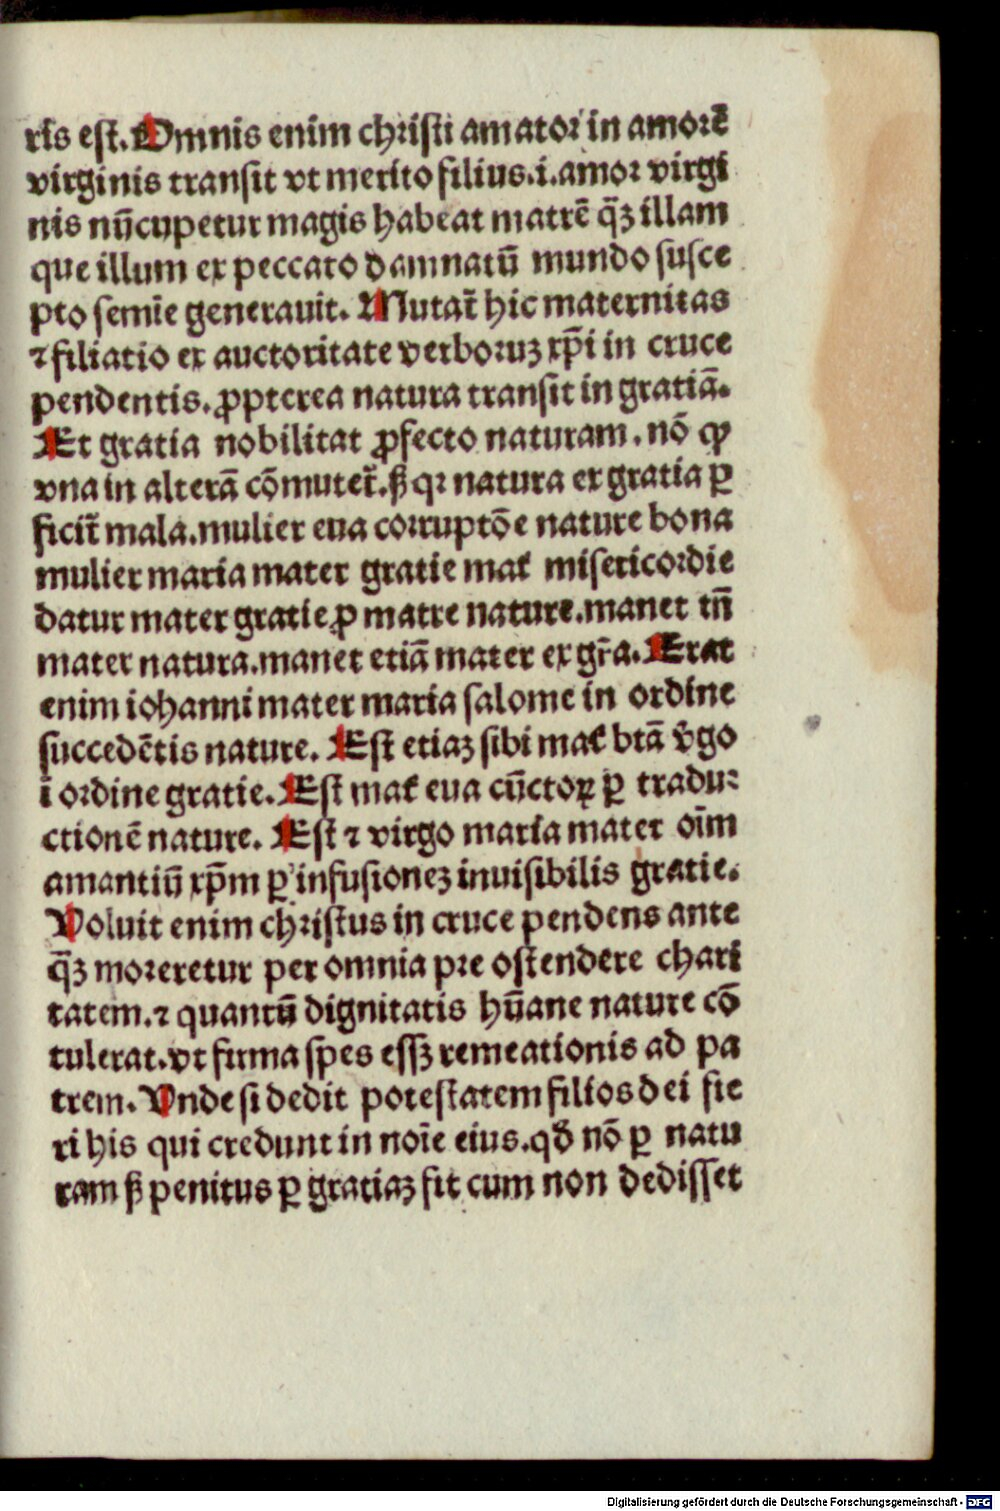 ris est. Omnis enim christi amator in amorē
virginis transit vt merito filius .i. amor virgi
nis nūcupetur magis habeat matrē q̄ꝫ illam
que illum ex peccato damnatū mundo susce
pto semīe generauit. Mutat̄ hic maternitas
⁊ filiatio ex auctoritate verboruꝫ xp̄i in cruce
pendentis. ꝓpterea natura transit in gratiā.
Et gratia nobilitat ꝓfecto naturam. nō ꝙ
vna in alterā cōmutet̄. ß qꝛ natura ex gratia ꝑ
ficit̄ mala. mulier eua corruptōe nature bona
mulier maria mater gratie mat̄ misericordie
datur mater gratie ꝓ matre nature. manet tn̄
mater natura. manet etiā mater ex gr̄a. Erat
enim iohanni mater maria salome in ordine
succedētis nature. Est etiaꝫ sibi mat̄ btā v̄go
ī ordine gratie. Est mat̄ eua cūctoꝝ ꝑ tradu⸗
ctionē nature. Est ⁊ virgo maria mater oīm
amantiū xp̄m ꝑ infusioneꝫ inuisibilis gratie.
Voluit enim christus in cruce pendens ante
q̄ꝫ moreretur per omnia pre ostendere chari
tatem. ⁊ quantū dignitatis hūane nature cō
tulerat. vt firma spes essꝫ remeationis ad pa
trem. Vnde si dedit potestatem filios dei fie
ri his qui credunt in noīe eius. qđ nō ꝑ natu
ram ß penitus ꝑ gratiaꝫ fit cum non dedisset
Digitalisierung gefördert durch die Deutsche Forschungsgemeinschaft - DFG